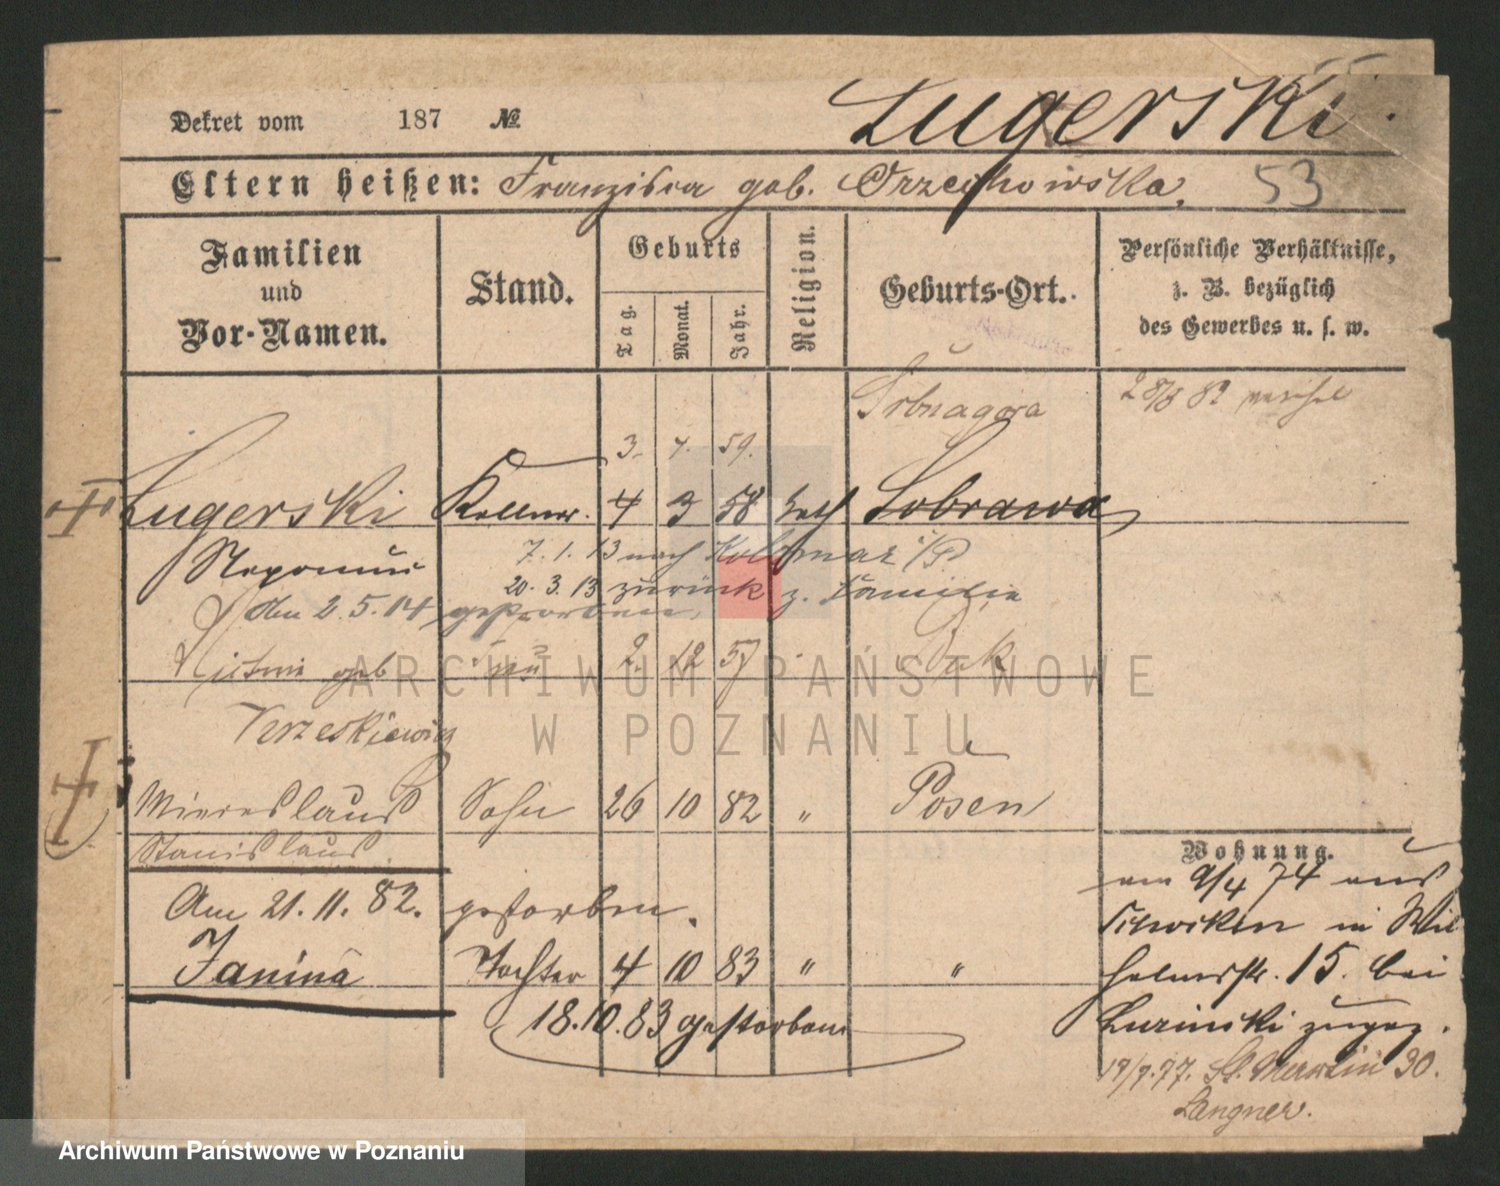 Dekret vom 187 № Lugerski.
Eltern heißen: Franziska geb. Orzechowska. 53
Familien und Vor-Namen.
Stand.
Geburts
Tag. Monat. Jahr.
Religion.
Geburts-Ort.
Persönliche Verhältnisse,
z. B. bezüglich
des Gewerbes u. s. w.
28/8 82
3. 59.
Lugerski Kellner. 4 3 58 kath
7. 1. 13 nach Kolomar i/P
20. 3. 13 zurück z. Familie
Am 2. 5. 14 gestorben
geb 2. 12 57
Mieceslaus Sohn 26 10 82 " Posen
Stanislaus
Am 21. 11. 82. gestorben.
Janina Tochter 4 10 83 " "
18. 10. 83 gestorben
Wohnung.
am 9/4 74 aus
in Wil
helmstr. 15. bei
Luzinski zugez.
St. Martin 30.
Langner.
ARCHIWUM PAŃSTWOWE
W POZNANIU
Archiwum Państwowe w Poznaniu